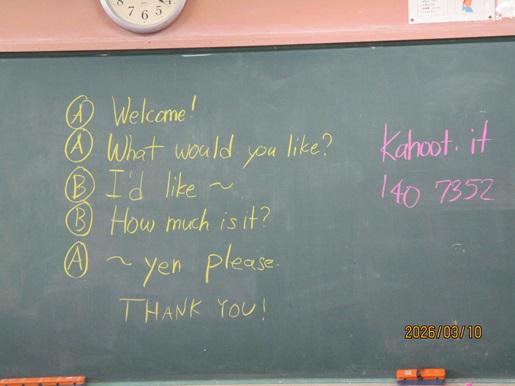 8 7 6 5 4
Ⓐ Welcome!
Ⓐ What would you like?
Ⓑ I'd like ~
Ⓑ How much is it?
Ⓐ ~ yen please.
THANK YOU!
Kahoot.it
140 7352
2026/03/10